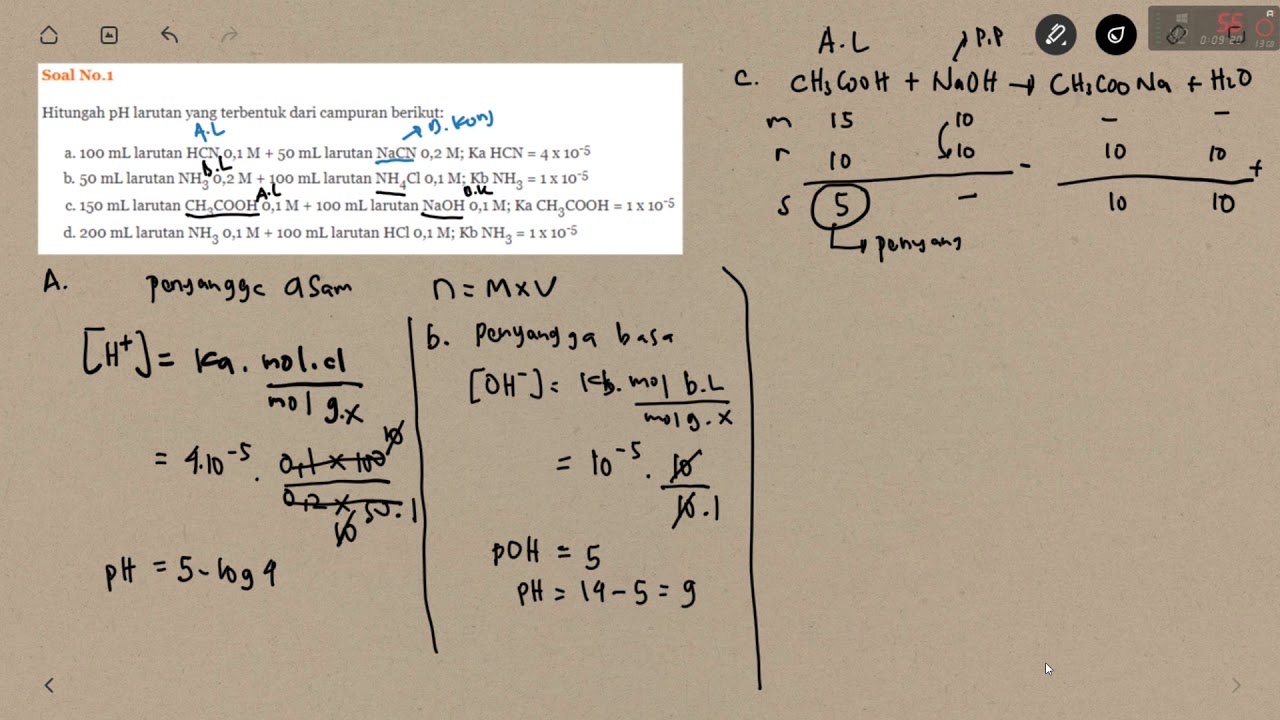 Soal No.1
Hitungah pH larutan yang terbentuk dari campuran berikut:
A.L
B. Konj
a. 100 mL larutan HCN 0,1 M + 50 mL larutan NaCN 0,2 M; Ka HCN = 4 x 10⁻⁵
B.L
b. 50 mL larutan NH₃ 0,2 M + 100 mL larutan NH₄Cl 0,1 M; Kb NH₃ = 1 x 10⁻⁵
A.L
B.K
c. 150 mL larutan CH₃COOH 0,1 M + 100 mL larutan NaOH 0,1 M; Ka CH₃COOH = 1 x 10⁻⁵
d. 200 mL larutan NH₃ 0,1 M + 100 mL larutan HCl 0,1 M; Kb NH₃ = 1 x 10⁻⁵
A. Penyangga asam
n = M x V
[H⁺] = Ka . mol . a
mol g . x
= 4.10⁻⁵ . 0,1 x 100 10
0,2 x 50 . 1
10
pH = 5 - log 4
b. Penyangga basa
[OH⁻] = Kb . mol b.L
mol g . x
= 10⁻⁵ . 10
10 . 1
pOH = 5
pH = 14 - 5 = 9
A.L
P.P
C. CH₃COOH + NaOH → CH₃COONa + H₂O
m 15 10 - -
r 10 10 - 10 10 +
s 5 - 10 10
penyang
56
0:09:20